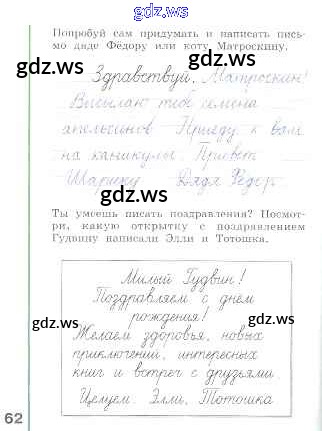 gdz.ws
Попробуй сам придумать и написать пись-
мо дяде Фёдору или коту Матроскину.
gdz.ws gdz.ws
Здравствуй, Матроскин!
Высылаю тебе семена
апельсинов Приеду к вам
на каникулы. Привет
gdz.ws gdz.ws
Шарику Дядя Фёдор
Ты умеешь писать поздравления? Посмот-
ри, какую открытку с поздравлением
Гудвину написали Элли и Тотошка.
gdz.ws gdz.ws
Милый Гудвин!
Поздравляем с днём
рождения!
gdz.ws gdz.ws
Желаем здоровья, новых
приключений, интересных
книг и встреч с друзьями
Целуем. Элли, Тотошка
62
gdz.ws gdz.ws